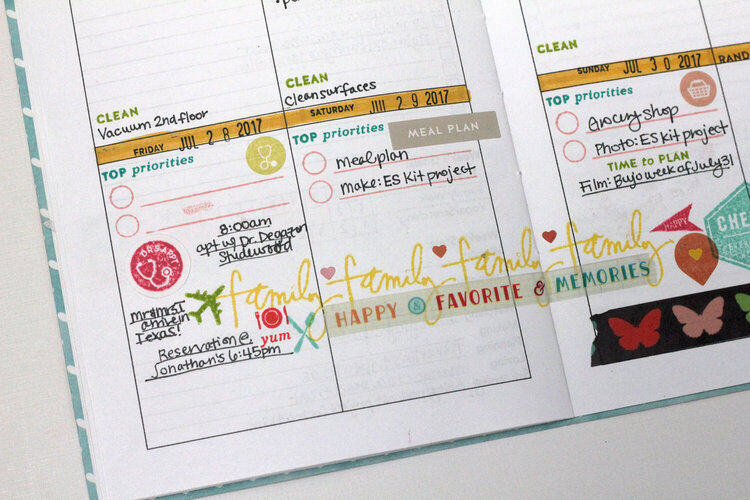 CLEAN
Vacuum 2nd floor
FRIDAY JUL 28 2017
TOP priorities
8:00am
apt w/ Dr.
DR'S APPT
Mr & Mrs T
arrive in
Texas!
Reservation @
Jonathan's 6:45pm
yum
CLEAN
Clean surfaces
SATURDAY JUL 29 2017
TOP priorities
MEAL PLAN
meal plan
make: ES Kit project
family family family family
HAPPY & FAVORITE & MEMORIES
CLEAN
SUNDAY JUL 30 2017
TOP priorities
Grocery shop
Photo: ES Kit project
TIME to PLAN
Film: Bujo week of July 31
HAPPY